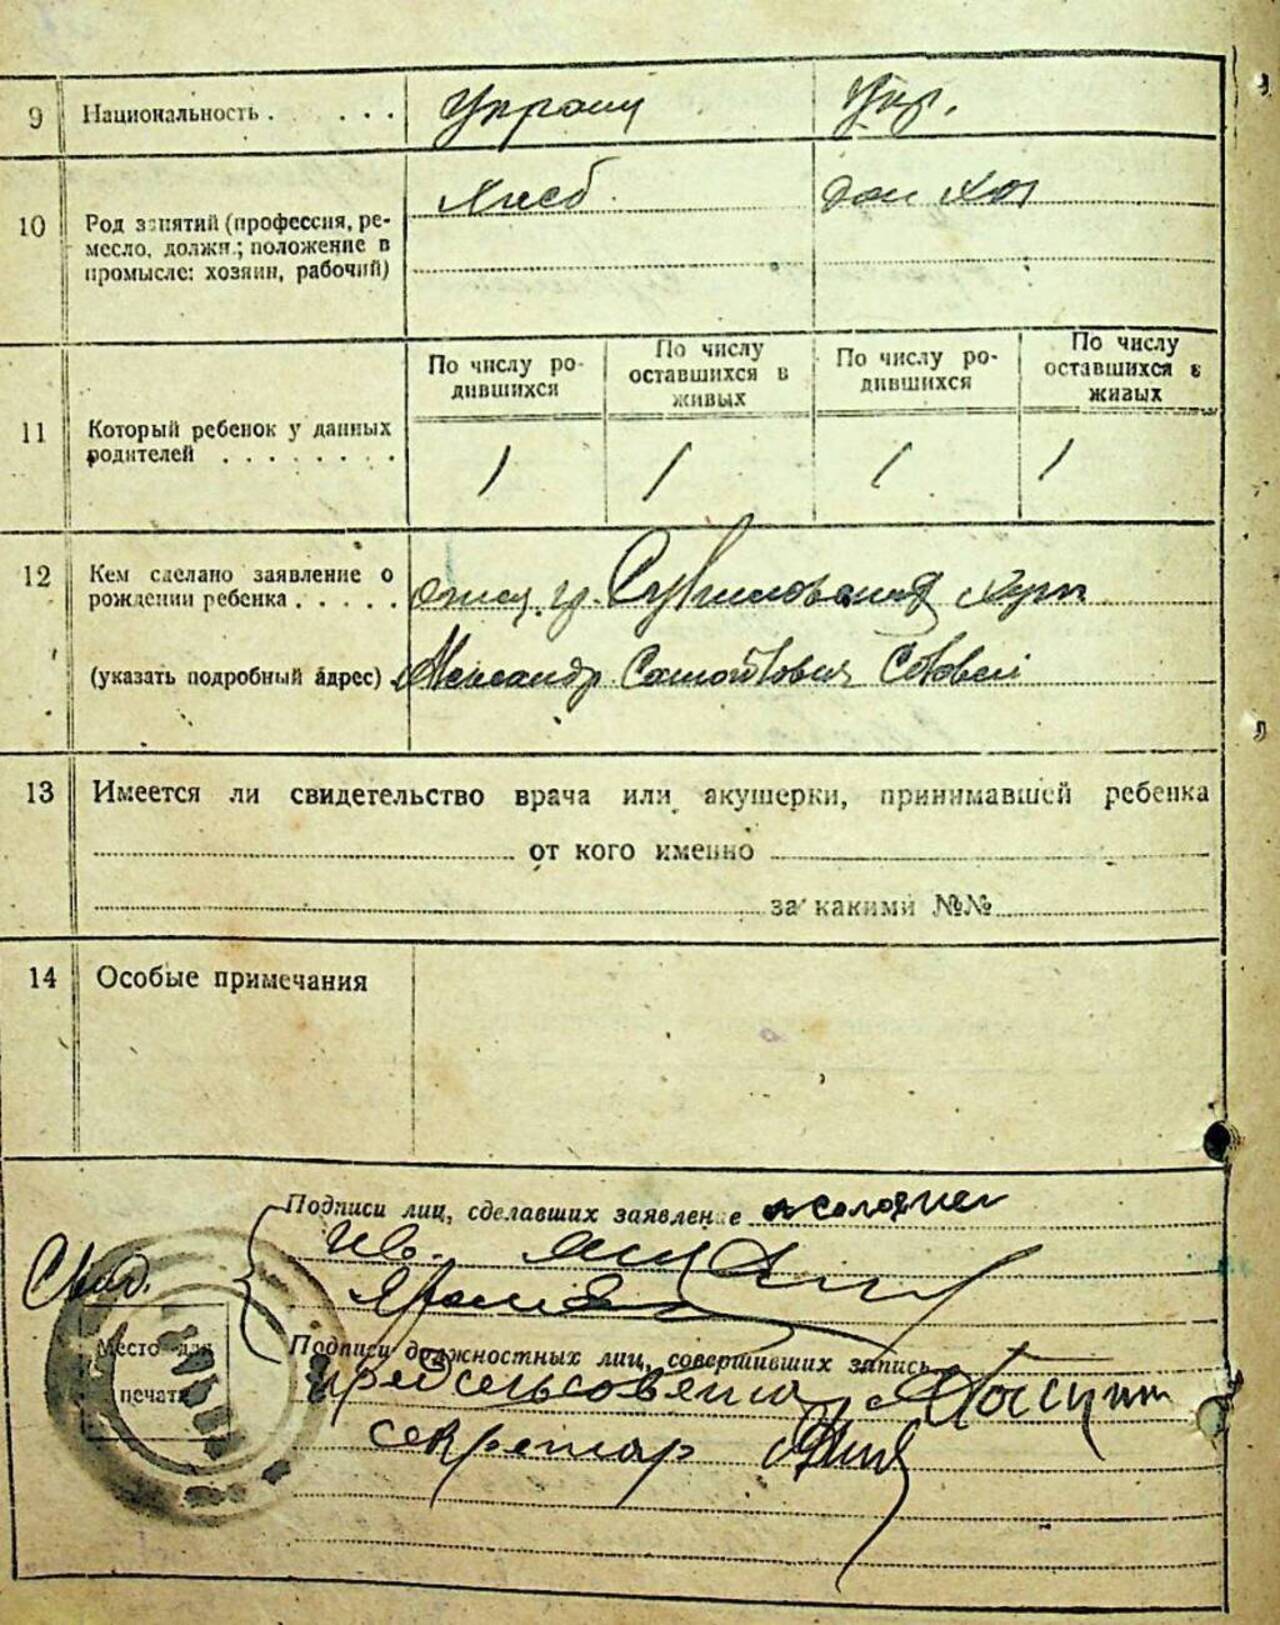 9 Национальность . . . . Украин Укр.
10 Род занятий (профессия, ре-
месло, должн.; положение в
промысле: хозяин, рабочий)
Хлеб. дом хоз
11 Который ребенок у данных
родителей . . . . . . . .
По числу ро-
дившихся
По числу
оставшихся в
живых
По числу ро-
дившихся
По числу
оставшихся в
живых
1 1 1 1
12 Кем сделано заявление о
рождении ребенка . . . . . отец гр.
(указать подробный адрес) Александр Соловей
13 Имеется ли свидетельство врача или акушерки, принимавшей ребенка
от кого именно
за какими №№
14 Особые примечания
Подписи лиц, сделавших заявление
Свид.
Место для
печати
Подписи должностных лиц, совершивших запись
пред сельсовета
секретар